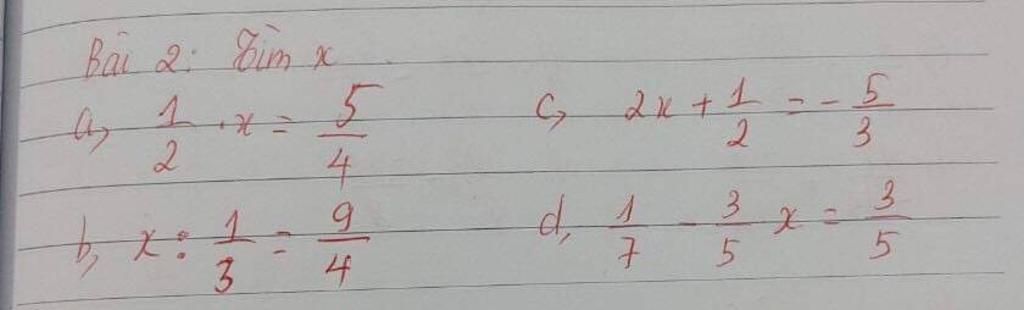 Bài 2: Tìm x
a, 1/2 . x = 5/4
c, 2x + 1/2 = - 5/3
b, x : 1/3 = 9/4
d, 1/7 - 3/5 x = 3/5